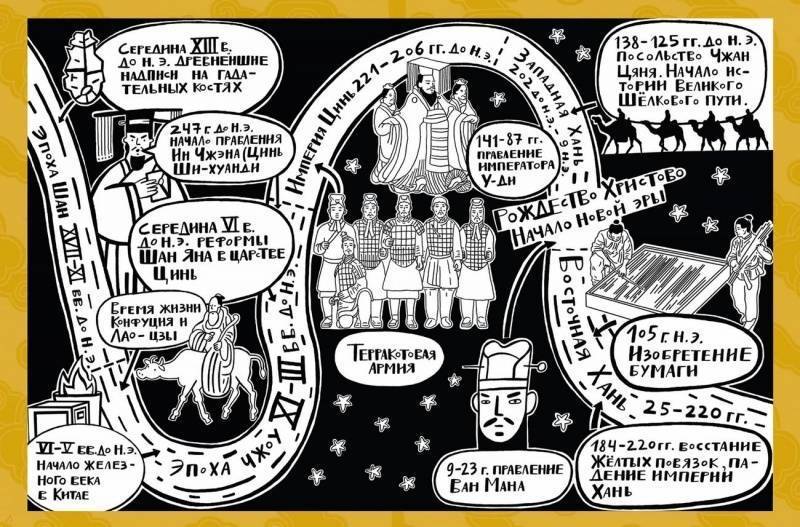 Середина XIII в.
до н. э. Древнейшие
надписи на гада-
тельных костях
247 г. до н. э.
начало правления
Ин Чжэна (Цинь
Ши-хуанди
Середина VI в.
до н. э. реформы
Шан Яна в царстве
Цинь
Время жизни
Конфуция и
Лао-цзы
Эпоха Шан XVII-XI вв. до н. э.
VI-V вв. до н. э.
Начало желез-
ного века
в Китае
Эпоха Чжоу XI-III вв. до н. э.
Империя Цинь 221-206 гг. до н. э.
Терракотовая
армия
141-87 гг.
правление
императора
У-ди
Западная Хань
202 до н. э. - 9 н. э.
138-125 гг. до н. э.
посольство Чжан
Цяня. Начало ис-
тории Великого
Шёлкового пути.
Рождество Христово
Начало новой эры
105 г. н. э.
Изобретение
бумаги
Восточная Хань 25-220 гг.
9-23 г. правление
Ван Мана
184-220 гг. восстание
Жёлтых повязок, па-
дение империи
Хань